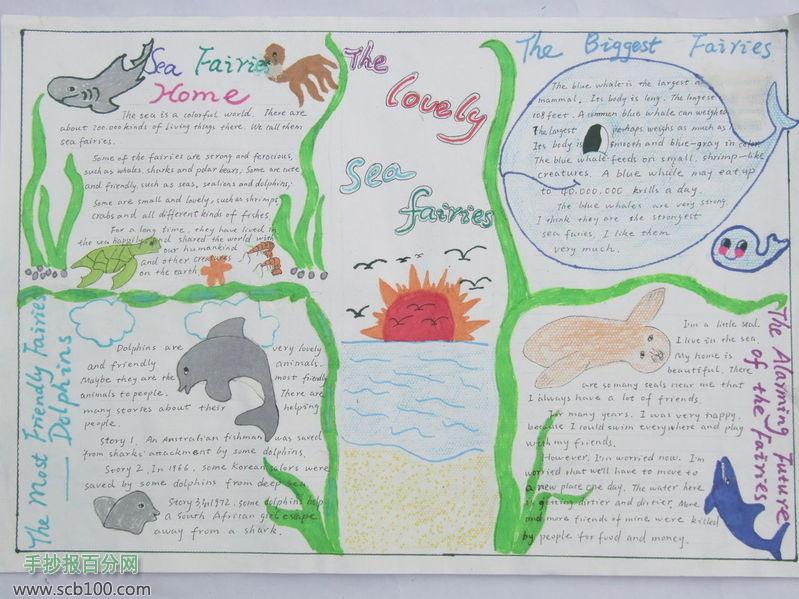 Sea Fairies
Home
The sea is a colorful world. There are
about 200.000 kinds of living things there. We call them
sea fairies.
Some of the fairies are strong and ferocious,
such as whales, sharks and polar bears, Some are cute
and friendly, such as seas, sealions and dolphins;
Some are small and lovely, such as shrimps,
crabs and all different kinds of fishes
For a long time, they have lived in
the sea happily and shared the world with
our humankind
and other creatures
on the earth
The
lovely
sea
fairies
The Biggest Fairies
The blue whale is the largest
mammal. Its body is long. The largest
108 feet. A common blue whale can weigh
The largest perhaps weighs as much as
Its body is smooth and blue-gray in color.
The blue whale feeds on small, shrimp-like
creatures. A blue whale may eat up
to 40.000.000 krills a day.
The blue whales are very strong
I think they are the strongest
sea fairies, I like them
very much.
The Most Friendly Fairies
—— Dolphins
Dolphins are very lovely
and friendly animals.
Maybe they are the most friendly
animals to people. There are
many stories about their helping
people.
Story 1. An Australian fishman was saved
from sharks' attackment by some dolphins.
Story 2. In 1966, some Korean sailors were
saved by some dolphins from deep sea
Story 3. In 1972, some dolphins help
a South African girl escape
away from a shark.
The Alarming Future
of the fairies
I'm a little seal.
I live in the sea.
My home is
beautiful. There
are so many seals near me that
I always have a lot of friends.
For many years. I was very happy,
because I could swim everywhere and play
with my friends.
However, I'm worried now. I'm
worried that we'll have to move to
a new place one day. The water here
is getting dirtier and dirtier. More
and more friends of mine were killed
by people for food and money.
手抄报百分网
www.scb100.com